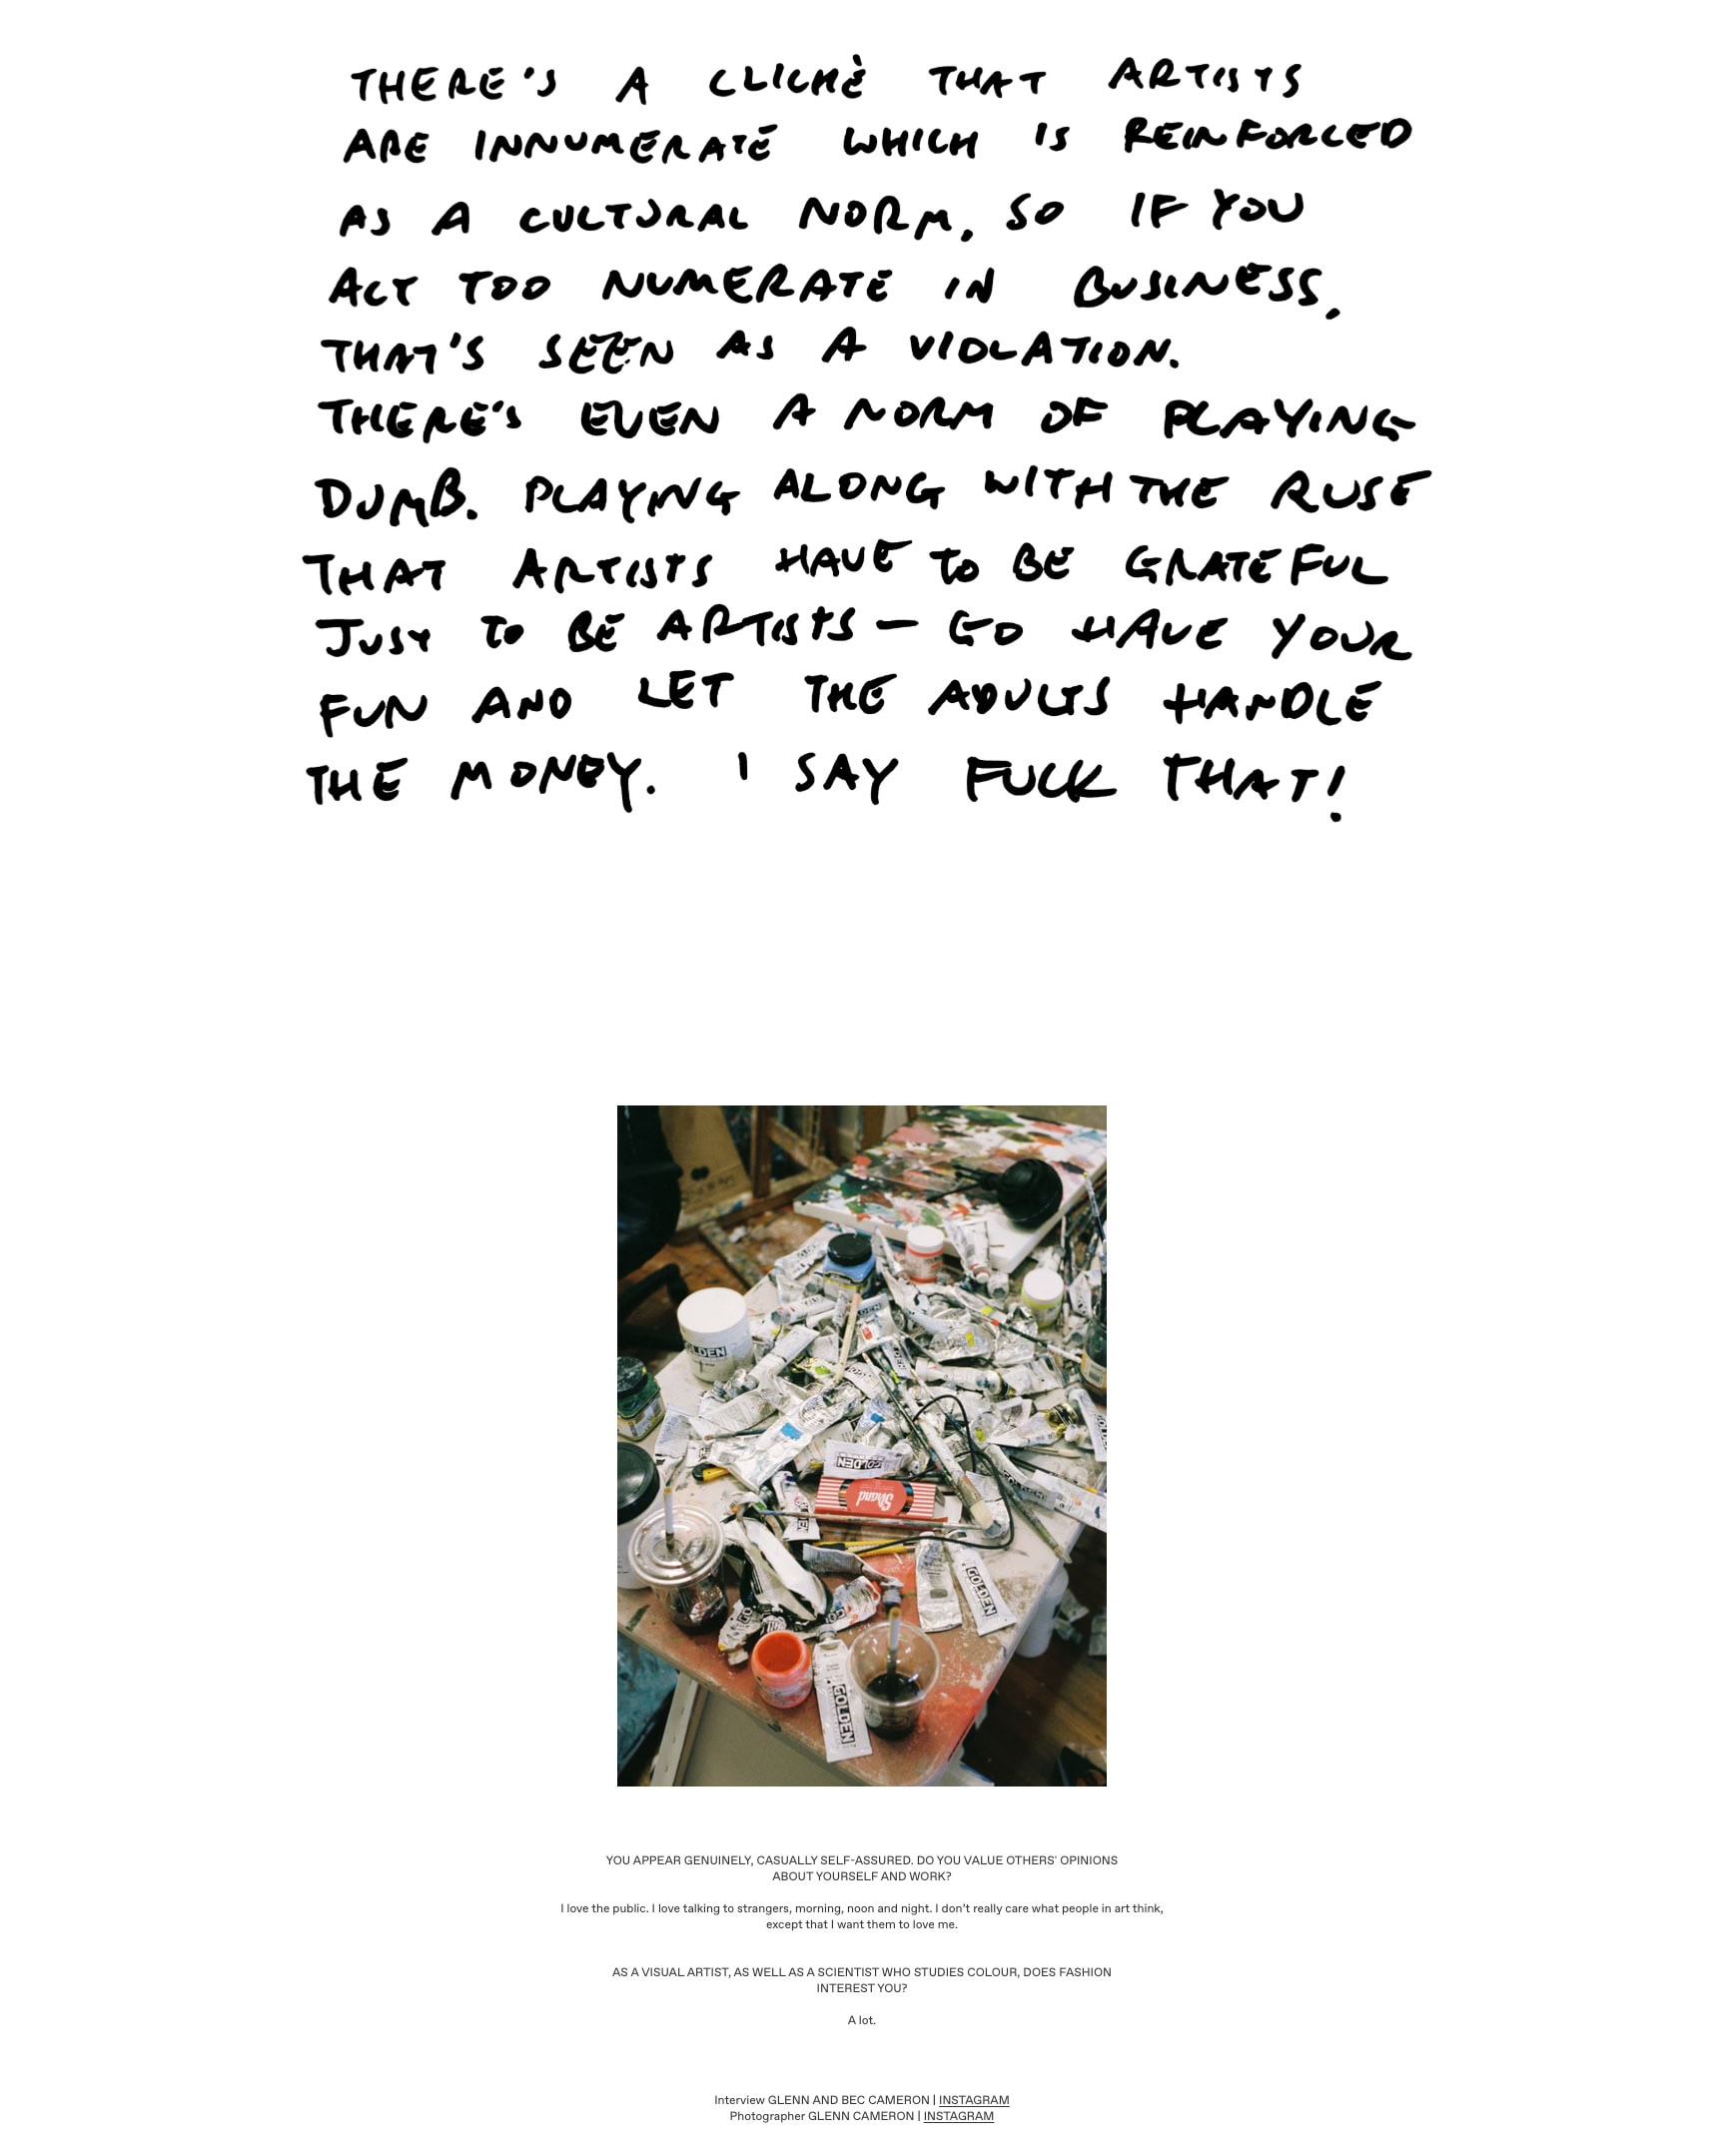 THERE'S A CLICHÈ THAT ARTISTS
ARE INNUMERATE WHICH IS REINFORCED
AS A CULTURAL NORM, SO IF YOU
ACT TOO NUMERATE IN BUSINESS,
THAT'S SEEN AS A VIOLATION.
THERE'S EVEN A NORM OF PLAYING
DUMB. PLAYING ALONG WITH THE RUSE
THAT ARTISTS HAVE TO BE GRATEFUL
JUST TO BE ARTISTS — GO HAVE YOUR
FUN AND LET THE ADULTS HANDLE
THE MONEY. I SAY FUCK THAT!
GOLDEN
GOLDEN
Strand
GOLDEN
GOLDEN
YOU APPEAR GENUINELY, CASUALLY SELF-ASSURED. DO YOU VALUE OTHERS' OPINIONS
ABOUT YOURSELF AND WORK?
I love the public. I love talking to strangers, morning, noon and night. I don't really care what people in art think,
except that I want them to love me.
AS A VISUAL ARTIST, AS WELL AS A SCIENTIST WHO STUDIES COLOUR, DOES FASHION
INTEREST YOU?
A lot.
Interview GLENN AND BEC CAMERON | INSTAGRAM
Photographer GLENN CAMERON | INSTAGRAM